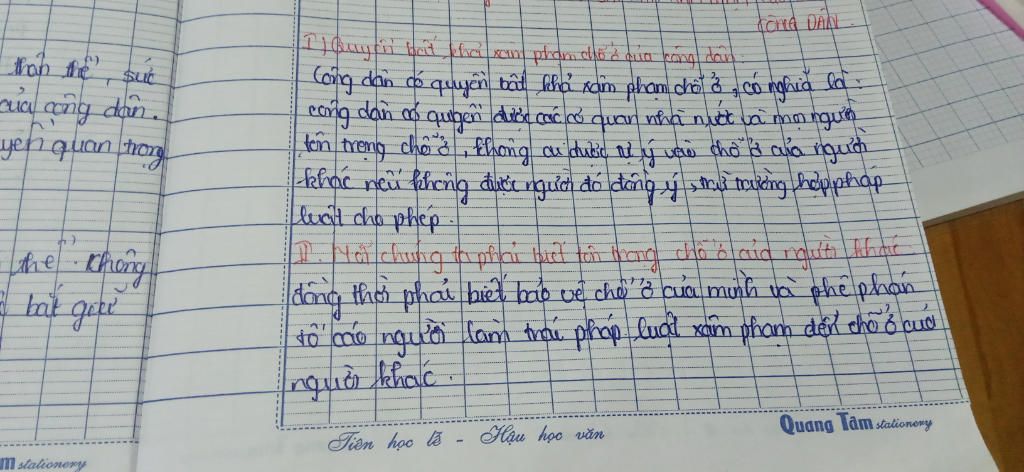 CÔNG DÂN.
I) Quyền bất khả xâm phạm chỗ ở của công dân.
Công dân có quyền bất khả xâm phạm chỗ ở, có nghĩa là:
công dân có quyền được các cơ quan nhà nước và mọi người
tôn trọng chỗ ở, không ai được tự ý vào chỗ ở của người
khác nếu không được người đó đồng ý, trừ trường hợp pháp
luật cho phép.
II. Nói chung ta phải biết tôn trọng chỗ ở của người khác
đồng thời phải biết bảo vệ chỗ ở của mình và phê phán
tố cáo người làm trái pháp luật xâm phạm đến chỗ ở của
người khác.
Tiên học lễ - Hậu học văn
Quang Tâm stationery
thân thể, sức
của công dân.
quan trọng
thể. không
bắt giữ
m stationery